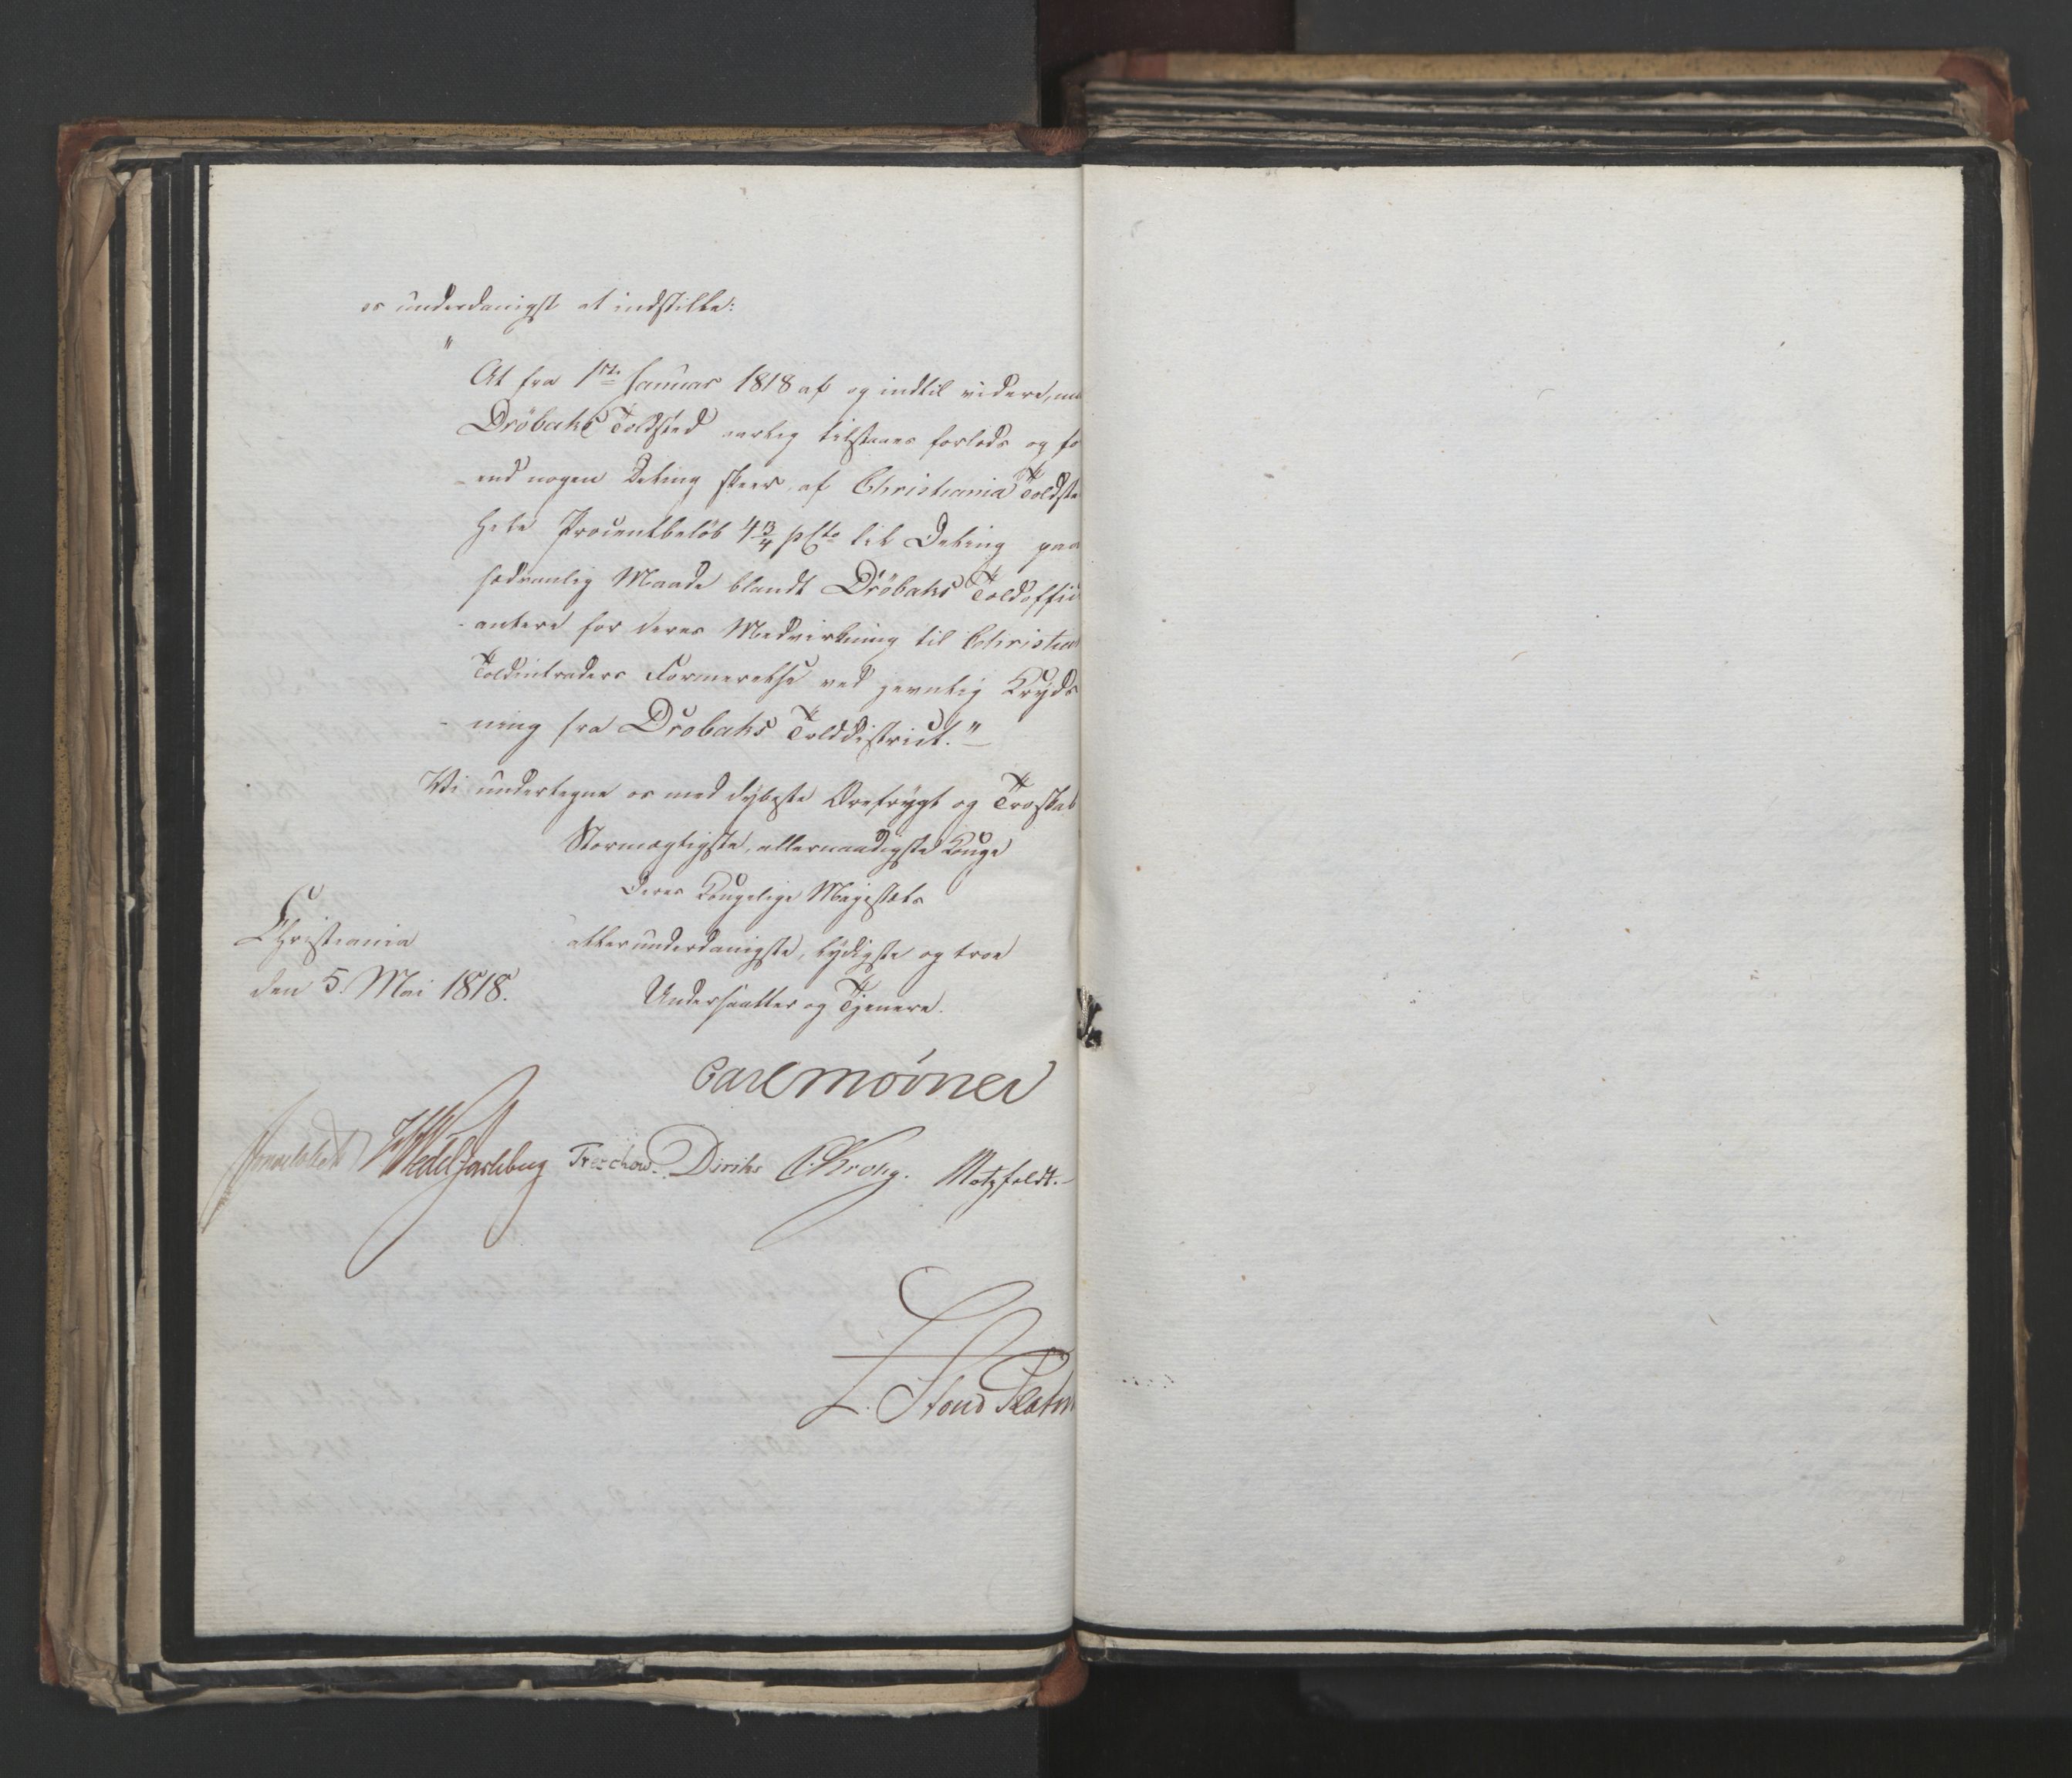 os underdanigst at indstille:
"
At fra 1ste Januar 1818 af og indtil videre, maa
Dröbaks Toldsted aarlig tilstaaes forlods og för
-end nogen Deling skeer, af Christiania Toldsteds
hele Procentbelöb 4 3/4 pCto til Deling paa
sædvanlig Maade blandt Dröbaks Toldoffici
-antere for deres Medvirkning til Christiania
Toldintraders Formerelse ved jevnlig Kryds
-ning fra Dröbaks Tolddistrict."
Vi undertegne os med dybeste Ærefrygt og Troskab
Stormægtigste, allernaadigste Konge
Deres Kongelige Majestæts
allerunderdanigste, lydigste og troe
Undersaatter og Tjenere.
Christiania
den 5. Mai 1818.
Carl Mörner
HWedel Jarlsberg Treschow. Diriks CKrohg. Motzfeldt.